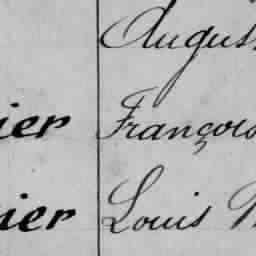 August
ier François
ier Louis